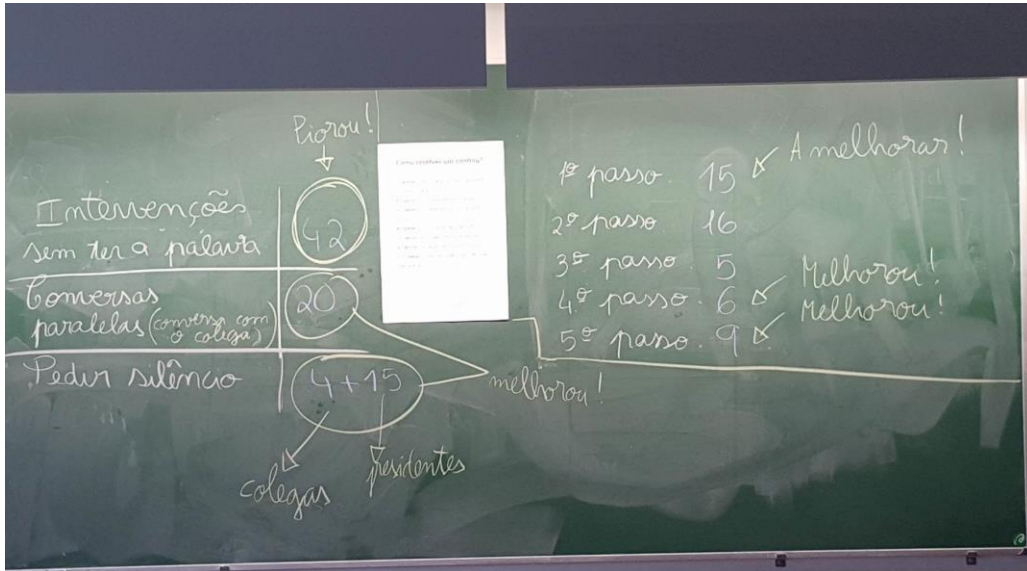 Piorou!
Intervenções
sem ter a palavra
42
Conversas
paralelas (conversa com
o colega)
20
Pedir silêncio
4 + 15
melhorou!
colegas
Presidentes
Como resolves um conflito?
1º passo. 15
A melhorar!
2º passo 16
3º passo. 5
4º passo. 6
Melhorou!
5º passo. 9
Melhorou!